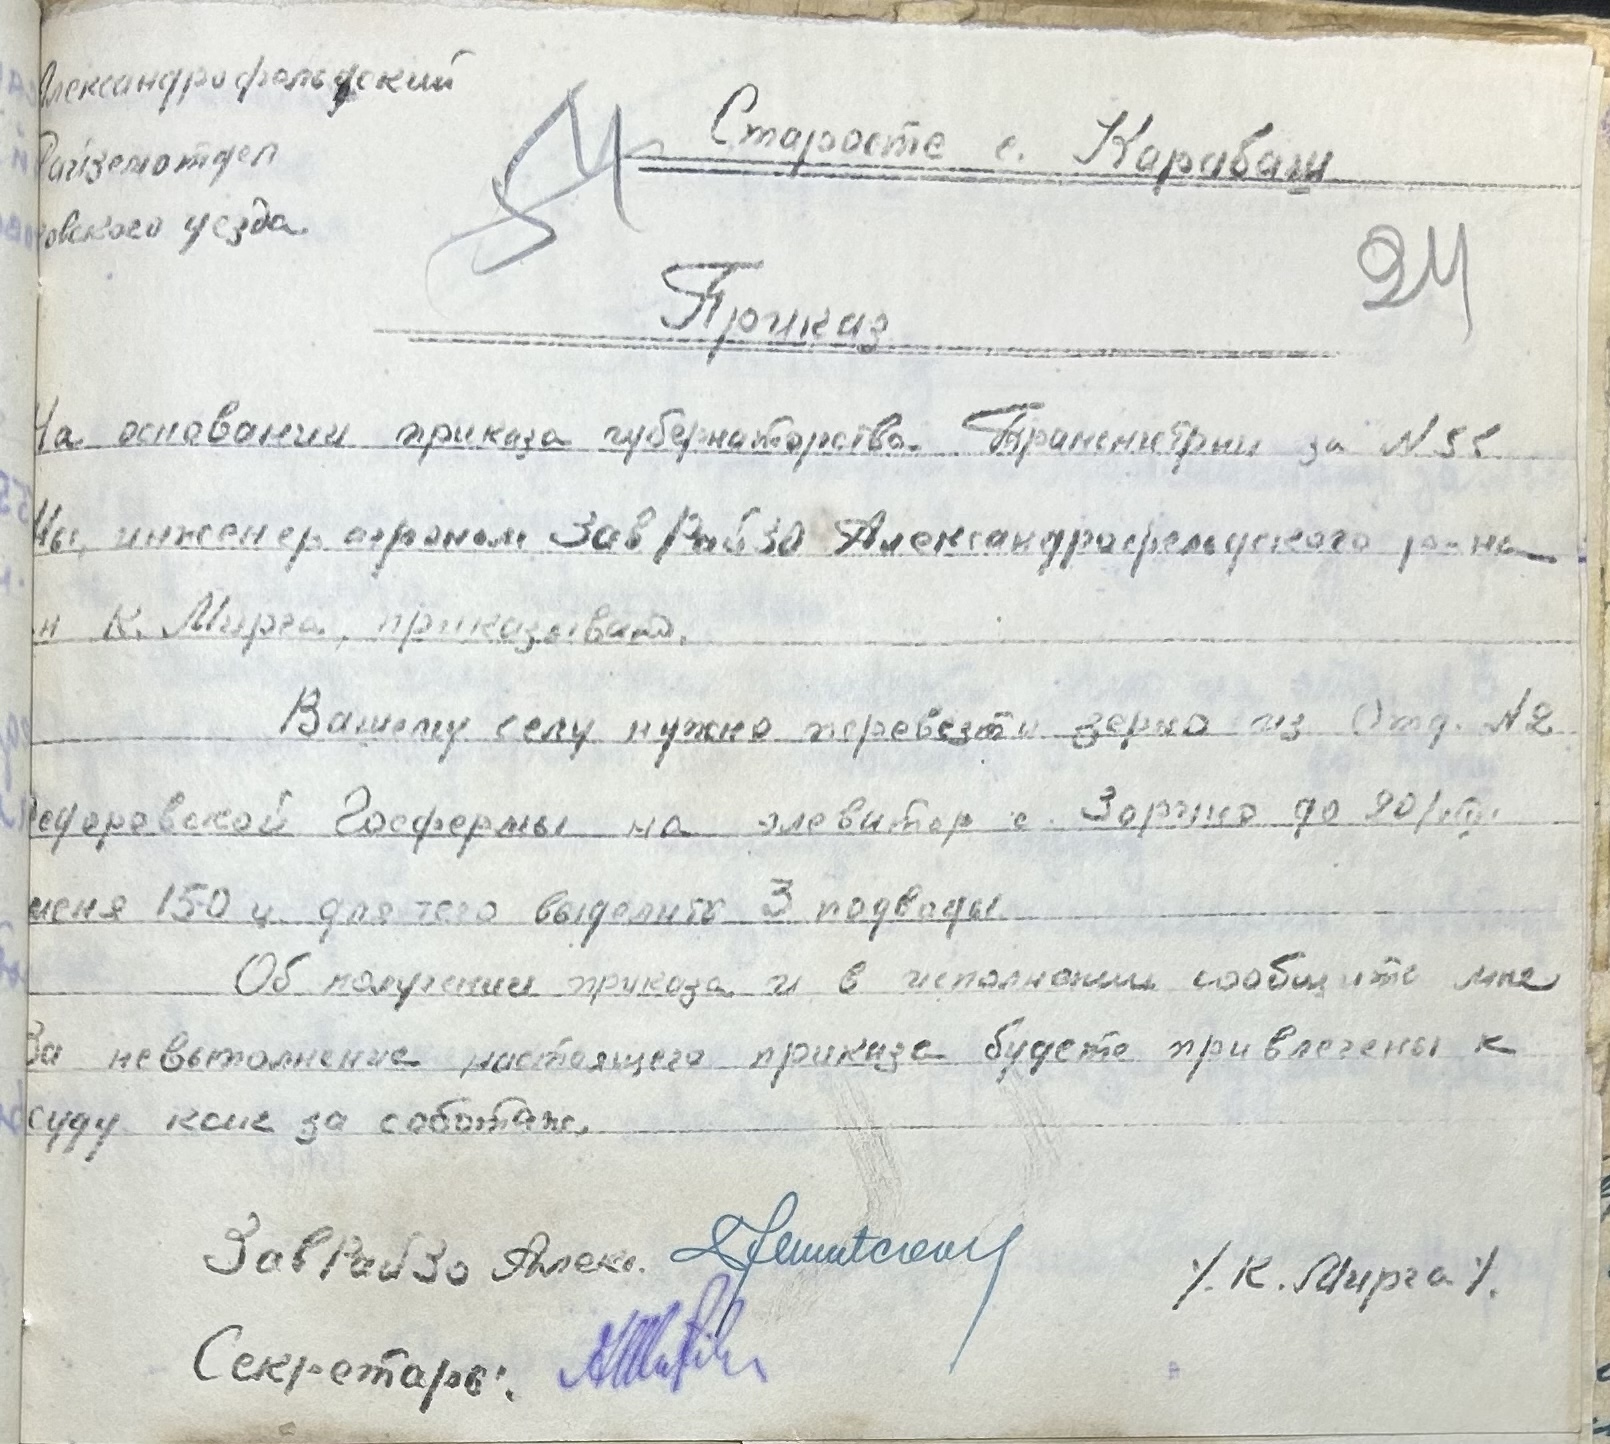 Александрофельдский
Райземотдел
овского уезда.
Старосте с. Карабаш
24
Приказ
На основании приказа губернаторства Транснистрии за N 55
Мы, инженер агроном ЗавРайЗО Александрофельдского р-на
К. Мирга, приказываю.
Вашему селу нужно перевезти зерно из Отд. N2
едоровской Госфермы на элеватор с. до 20/
меня 150 ц. для чего выделить 3 подводы
Об получении приказа и в исполнении сообщите мне
За невыполнение настоящего приказа будете привлечены к
суду как за саботаж.
ЗавРайЗо Алекс.
/. К. Мирга /.
Секретарь: